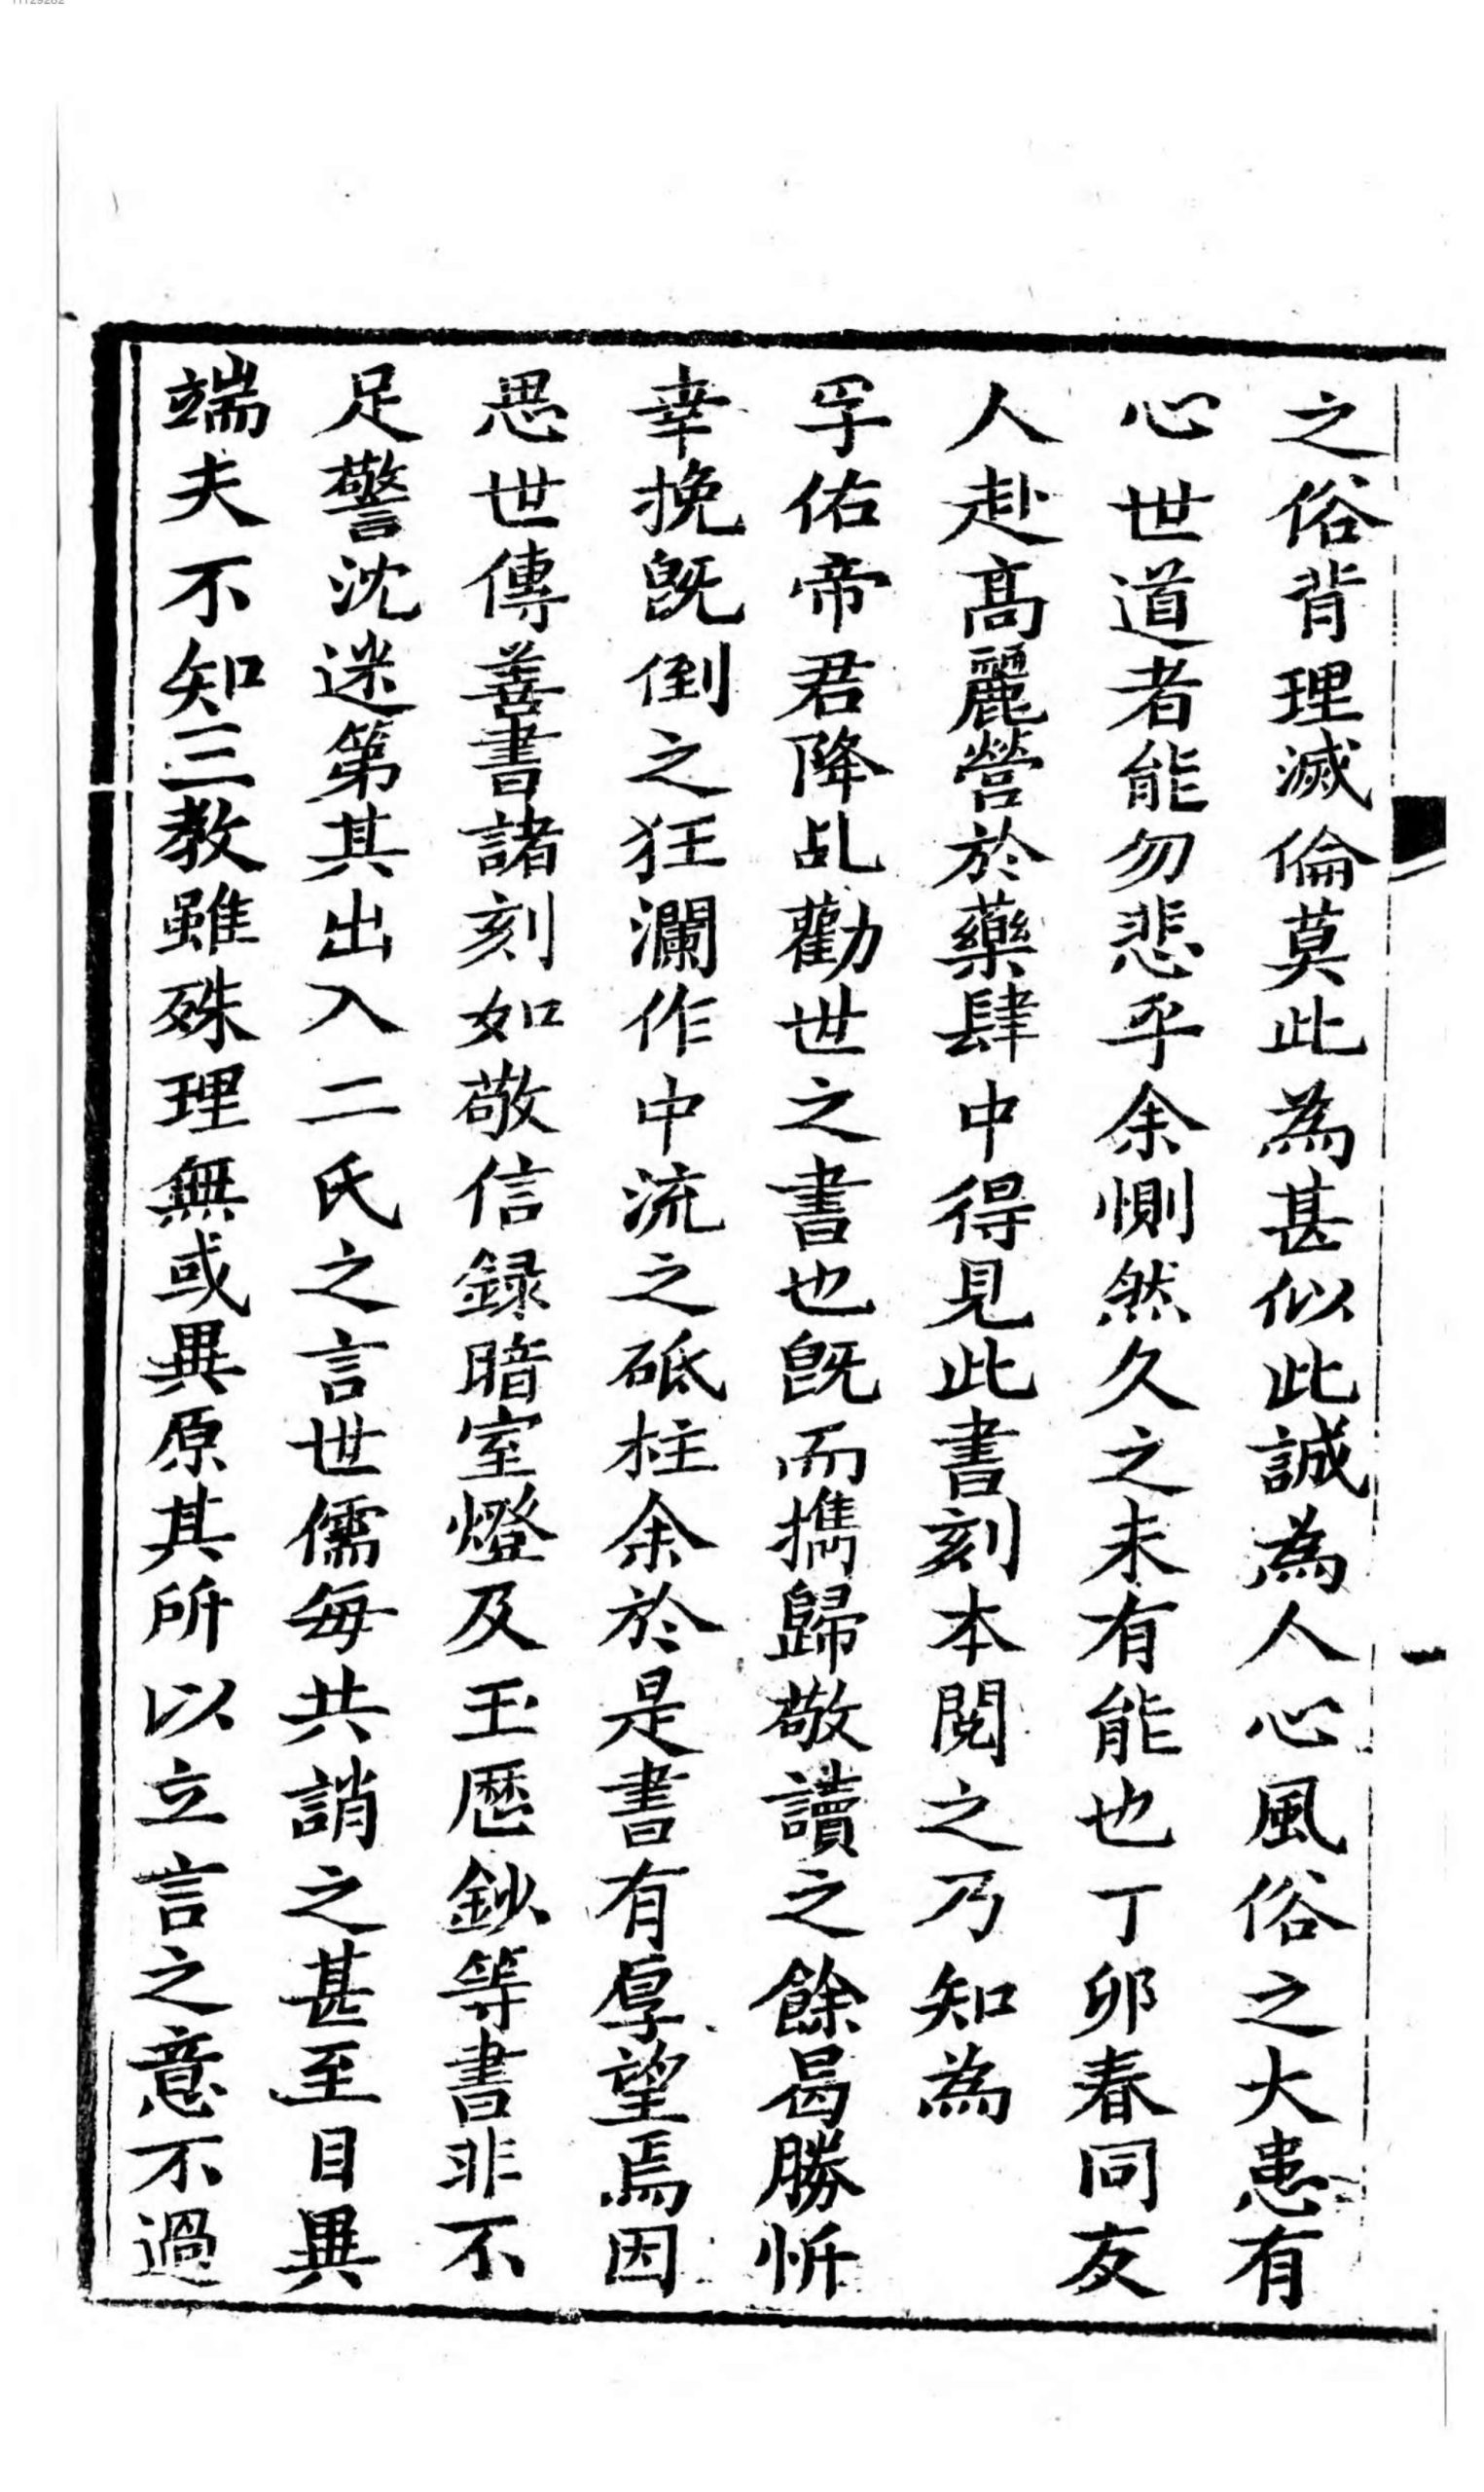 之俗背理滅倫莫此為甚似此誠為人心風俗之大患有
心世道者能勿悲乎余惻然久之未有能也丁卯春同友
人赴高麗營於藥肆中得見此書刻本閱之乃知為
孚佑帝君降乩勸世之書也既而攜歸敬讀之餘曷勝忻
幸挽既倒之狂瀾作中流之砥柱余於是書有厚望焉因
思世傳善書諸刻如敬信録暗室燈及玉歷鈔等書非不
足警沈迷第其出入二氏之言世儒每共誚之甚至目異
端夫不知三教雖殊理無或異原其所以立言之意不過